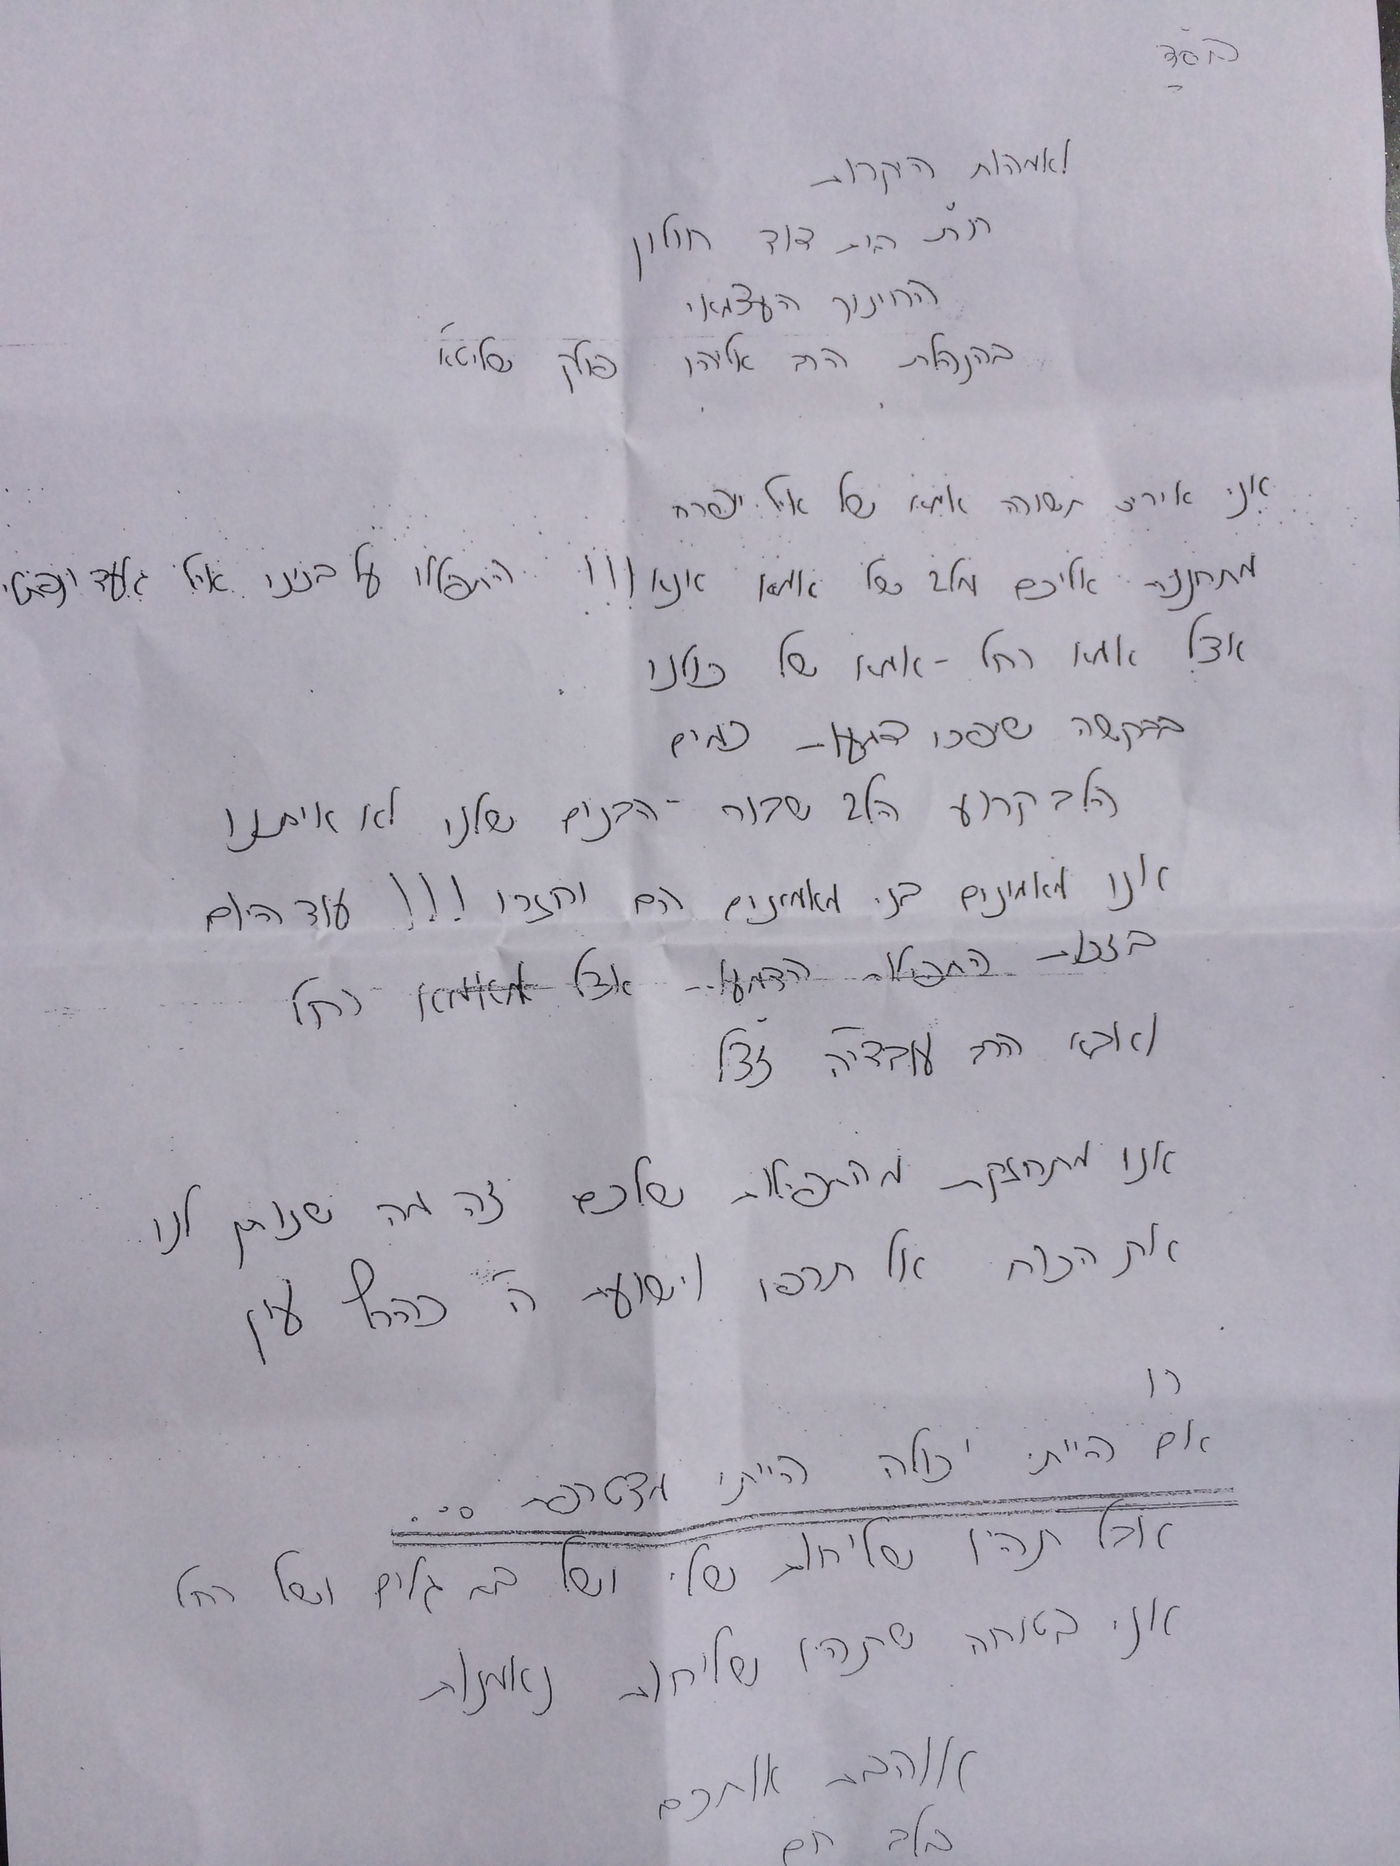 בס"ד
לאמהות היקרות
ת"ת בית דוד חולון
החינוך העצמאי
בהנהלת הרב אליהו פולק שליט"א
אני איריס תשורה אמא של אייל יפרח
מתחננת אליכם מלב של אמא אנא!!! התפללו על בנינו אייל גלעד ונפתלי
אצל אמא רחל - אמא של כולנו
בבקשה שיפכו דמעות כמים
הלב קרוע הלב שבור - הבנים שלנו לא איתנו
אנו מאמינים בני מאמינים הם יחזרו!!! עוד היום
בזכות התפילות הדמעות אצל אמא רחל
ואבא הרב עובדיה זצ"ל
אנו מתחזקת מהתפילות שלכם זה מה שנותן לנו
את הכוח אל תרפו וישועת ה' כהרף עין
אם הייתי יכולה הייתי מצטרפת ...
אבל תהיו שליחות שלי ושל בת גלים ושל רחל
אני בטוחה שתהיו שליחות נאמנות
אוהבת אתכם
בלב חם